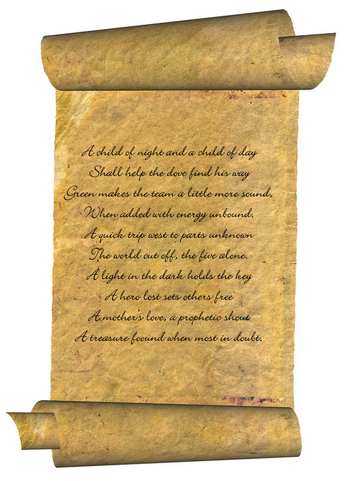 A child of night and a child of day
Shall help the dove find his way
Green makes the team a little more sound,
When added with energy unbound.
A quick trip west to parts unknown
The world cut off, the five alone.
A light in the dark holds the key
A hero lost sets others free
A mother's love, a prophetic shout
A treasure foound when most in doubt.